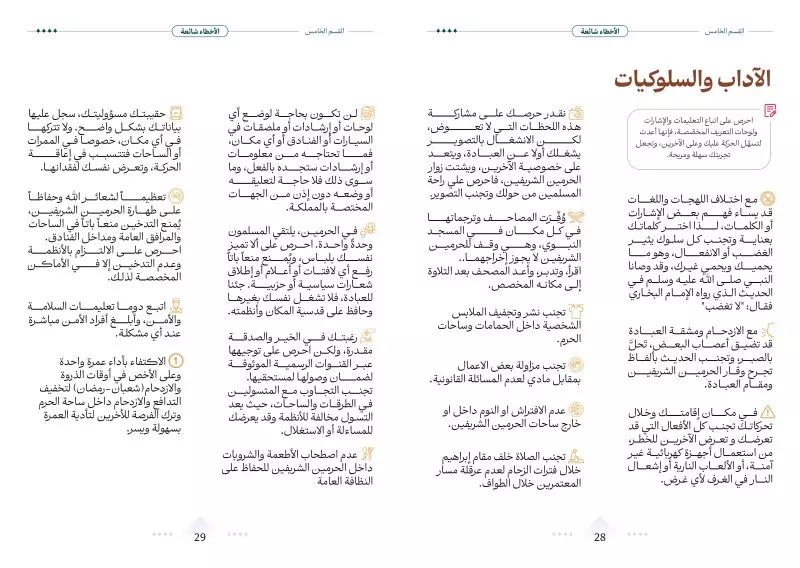 القسم الخامس
الأخطاء شائعة
الآداب والسلوكيات
احرص على اتباع التعليمات والإشارات
ولوحات التعريف المخصصة، فإنها أعدت
لتسهل الحركة عليك وعلى الآخرين، وتجعل
تجربتك سهلة ومريحة.
مع اختلاف اللهجات واللغات
قد يساء فهم بعض الإشارات
أو الكلمات، لذا اختر كلماتك
بعناية وتجنب كل سلوك يثير
الغضب أو الانفعال، وهو مما
يحميك ويحمي غيرك، وقد وصانا
النبي صلى الله عليه وسلم في
الحديث الذي رواه الإمام البخاري
فقال: "لا تغضب"
مع الازدحام ومشقة العبادة
قد تضيق أعصاب البعض، تَحلَّ
بالصبر وتجنب الحديث بألفاظ
تجرح وقار الحرمين الشريفين
ومقام العبادة.
في مكان إقامتك وخلال
تحركاتك تجنب كل الأفعال التي قد
تعرضك و تعرض الآخرين للخطر،
من استعمال أجهزة كهربائية غير
آمنة، أو الألعاب النارية أو إشعال
النار في الغرف لأي غرض.
نقدر حرصك على مشاركة
هذه اللحظات التي لا تعوض،
لكن الانشغال بالتصوير
يشغلك أولا عن العبادة، ويتعد
على خصوصية الآخرين، ويشتت زوار
الحرمين الشريفين، فاحرص على راحة
المسلمين من حولك وتجنب التصوير.
وُفِّرَت المصاحف وترجماتها
في كل مكان في المسجد
النبوي، وهي وقف للحرمين
الشريفين لا يجوز إخراجهما..
اقرأ، وتدبر، وأعد المصحف بعد التلاوة
إلى مكانه المخصص.
تجنب نشر وتجفيف الملابس
الشخصية داخل الحمامات وساحات
الحرم.
تجنب مزاولة بعض الاعمال
بمقابل مادي لعدم المسائلة القانونية.
عدم الافتراش او النوم داخل او
خارج ساحات الحرمين الشريفين.
تجنب الصلاة خلف مقام إبراهيم
خلال فترات الزحام لعدم عرقلة مسار
المعتمرين خلال الطواف.
28
القسم الخامس
الأخطاء شائعة
لن تكون بحاجة لوضع أي
لوحات أو إرشادات أو ملصقات في
السيارات أو الفنادق أو أي مكان،
فما تحتاجه من معلومات
أو إرشادات ستجده بالفعل، وما
سوى ذلك فلا حاجة لتعليقه
أو وضعه دون إذن من الجهات
المختصة بالمملكة.
في الحرمين، يلتقي المسلمون
وحدةً واحدة. احرص على ألا تميز
نفسك بلباس، ويُمنع منعاً باتاً
رفع أي لافتات أو أعلام أو إطلاق
شعارات سياسية أو حزبية. جئنا
للعبادة، فلا تشغل نفسك بغيرها
وحافظ على قدسية المكان وأنظمته.
رغبتك في الخير والصدقة
مقدرة، ولكن احرص على توجيهها
عبر القنوات الرسمية الموثوقة
لضمان وصولها لمستحقيها.
تجنب التجاوب مع المتسولين
في الطرقات والساحات، حيث يعد
التسول مخالفة للأنظمة وقد يعرضك
للمساءلة أو الاستغلال.
عدم اصطحاب الأطعمة والشروبات
داخل الحرمين الشريفين للحفاظ على
النظافة العامة
حقيبتك مسؤوليتك، سجل عليها
بياناتك بشكل واضح. ولا تتركها
في أي مكان، خصوصاً في الممرات
أو الساحات فتتسبب في إعاقة
الحركة، وتعرض نفسك لفقدانها.
تعظيماً لشعائر الله وحفاظاً
على طهارة الحرمين الشريفين،
يُمنع التدخين منعاً باتاً في الساحات
والمرافق العامة ومداخل الفنادق.
احرص على الالتزام بالأنظمة
وعدم التدخين إلا في الأماكن
المخصصة لذلك.
اتبع دوما تعليمات السلامة
والأمن، وأبلغ أفراد الأمن مباشرة
عند أي مشكلة.
الاكتفاء بأداء عمرة واحدة
وعلى الأخص في أوقات الذروة
والازدحام(شعبان-رمضان) لتخفيف
التدافع والازدحام داخل ساحة الحرم
وترك الفرصة للأخرين لتأدية العمرة
بسهولة ويسر.
29